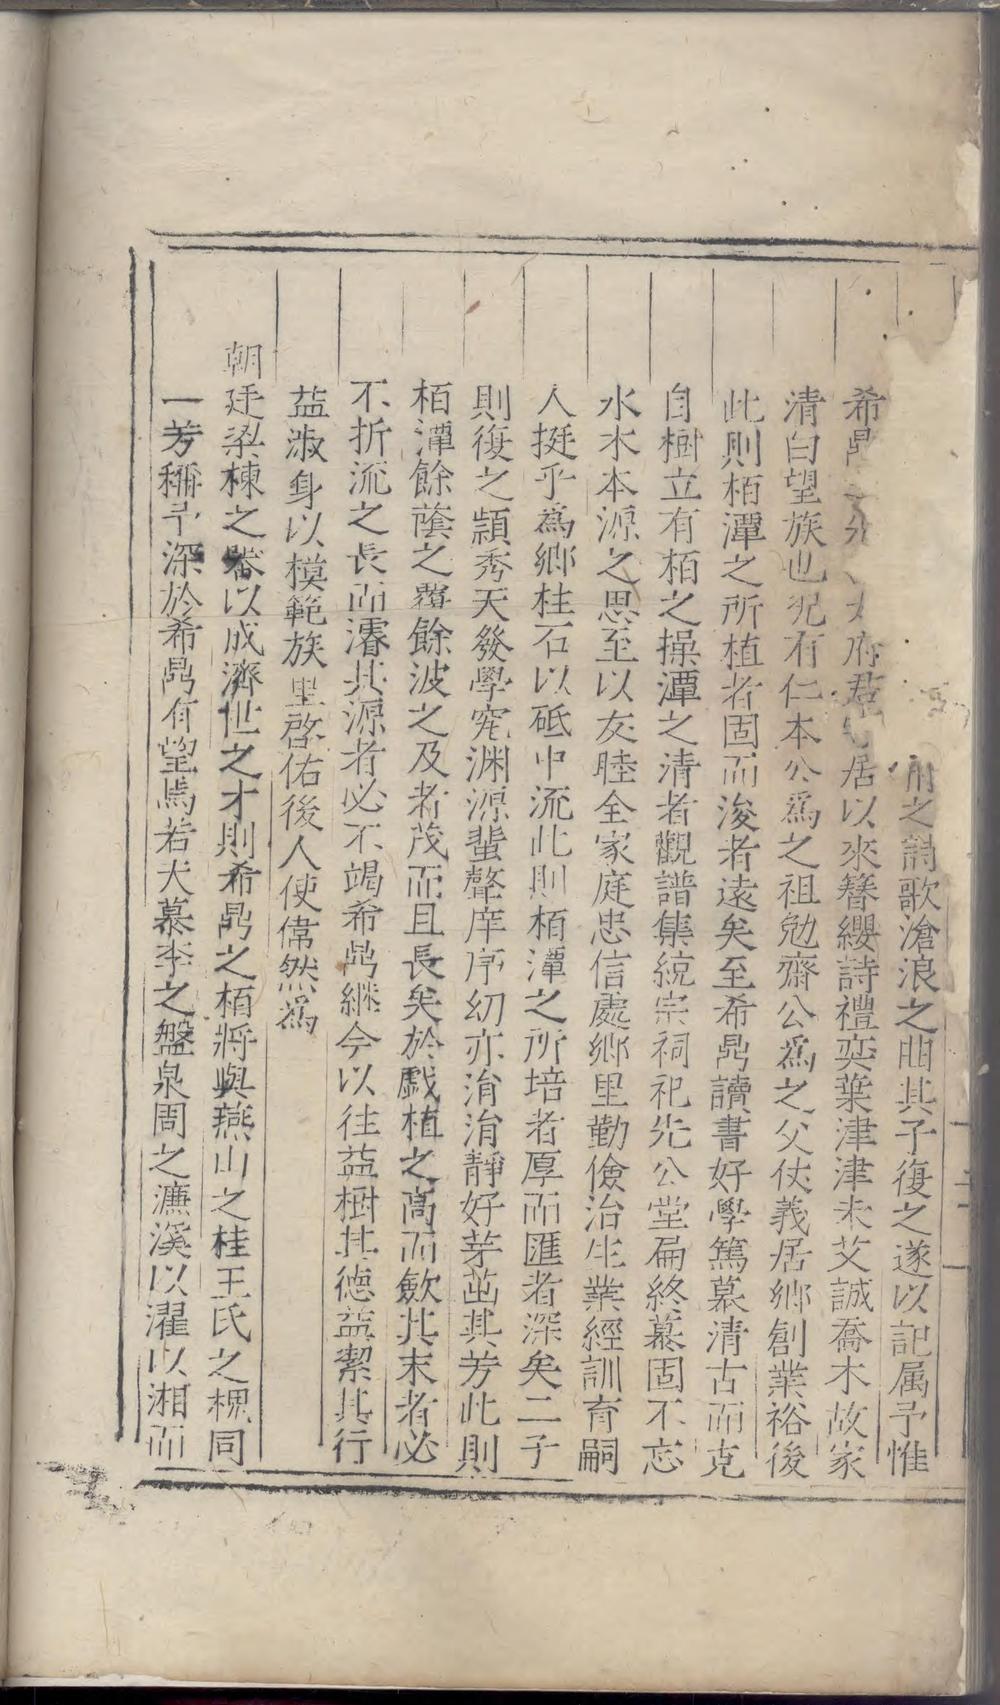 之詩歌滄浪之曲其子復之遂以記属予惟
希鼎府君居以來簪纓詩禮奕葉津津未艾誠喬木故家
清白望族也況有仁本公爲之祖勉齋公爲之父仗義居鄉創業裕後
此則栢潭之所植者固而浚者遠矣至希鼎讀書好學篤慕清古而克
自樹立有栢之操潭之清者觀譜集統宗祠祀先公堂扁終慕固不忘
水木本源之思至以友睦全家庭忠信處鄉里勤儉治生業經訓育嗣
人挺乎爲鄉柱石以砥中流此則栢潭之所培者厚而匯者深矣二子
則復之頴秀天發學究渊源蜚聲庠序幼亦淯淯靜好芽茁其芳此則
栢潭餘蔭之覆餘波之及者茂而且長矣於戲植之高而歛其末者必
不折流之長而濬其源者必不竭希鼎繼今以往益樹其德益潔其行
益淑身以模範族里啓佑後人使偉然爲
朝廷梁棟之器以成濟世之才則希鼎之栢將與燕山之桂王氏之槐同
一芳稱予深於希鼎有望焉若夫慕李之盤泉周之濂溪以濯以湘而